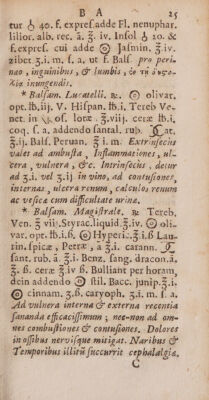 B A 25
tur ʒ 40. f. expres. adde Fl. nenuphar.
lilior. alb. rec. ā. ℥. iv. Insol ʒ 20. &
f. expres. cui adde Jasmin. ℥. iv.
zibet ʒ. i. m. s. a. ut f. Bals pro peri-
næo, inguinibus, & lumbis,
inungendis.
* Balsam. Lucatelli. ℞. olivar.
opt. ℔. iij. V. Hispan. ℔. i. Tereb Ve-
net. in os. lotæ ℥. viij. ceræ ℔. i.
coq. s. a. addendo santal. rub. at.
℥. ij. Bals. Peruan ℥. i. m. Extrinsecus
valet ad ambusta, Inflammationes, ul-
cera, vulnera, &c. Intrinsecus, detur
ad ʒ. i. vel ʒ. ij in vino, ad contusiones,
internas, ulcera renum, calculos renum
ac vesicæ cum difficultate urinæ.
* Balsam. Magistrale. ℞ Tereb.
Ven. ℥ viij. Styrac. liquid. ℥. iv. oli-
var. opt. ℔. i. ß Hyperi.. ℥. i. ß Lau-
rin. spicæ, Petræ, ā ℥. i. carann.
sant. rub. ā ℥. i. Benz. sang. dracon. ā.
℥. ß. ceræ ℥ iv ß. Bulliant per horam,
dein addendo stil. Bacc. junip. ℥. i.
cinnam. ℥. ß. caryoph. ʒ. i. m. s. a.
Ad vulnera interna & externa recentia
sananda efficacissimum; nec-non ad om-
nes combustiones & contusiones. Dolores
in ossibus nervisque mitigat. Naribus &
Temporibus illitũ succurrit cephalalgiæ.
C